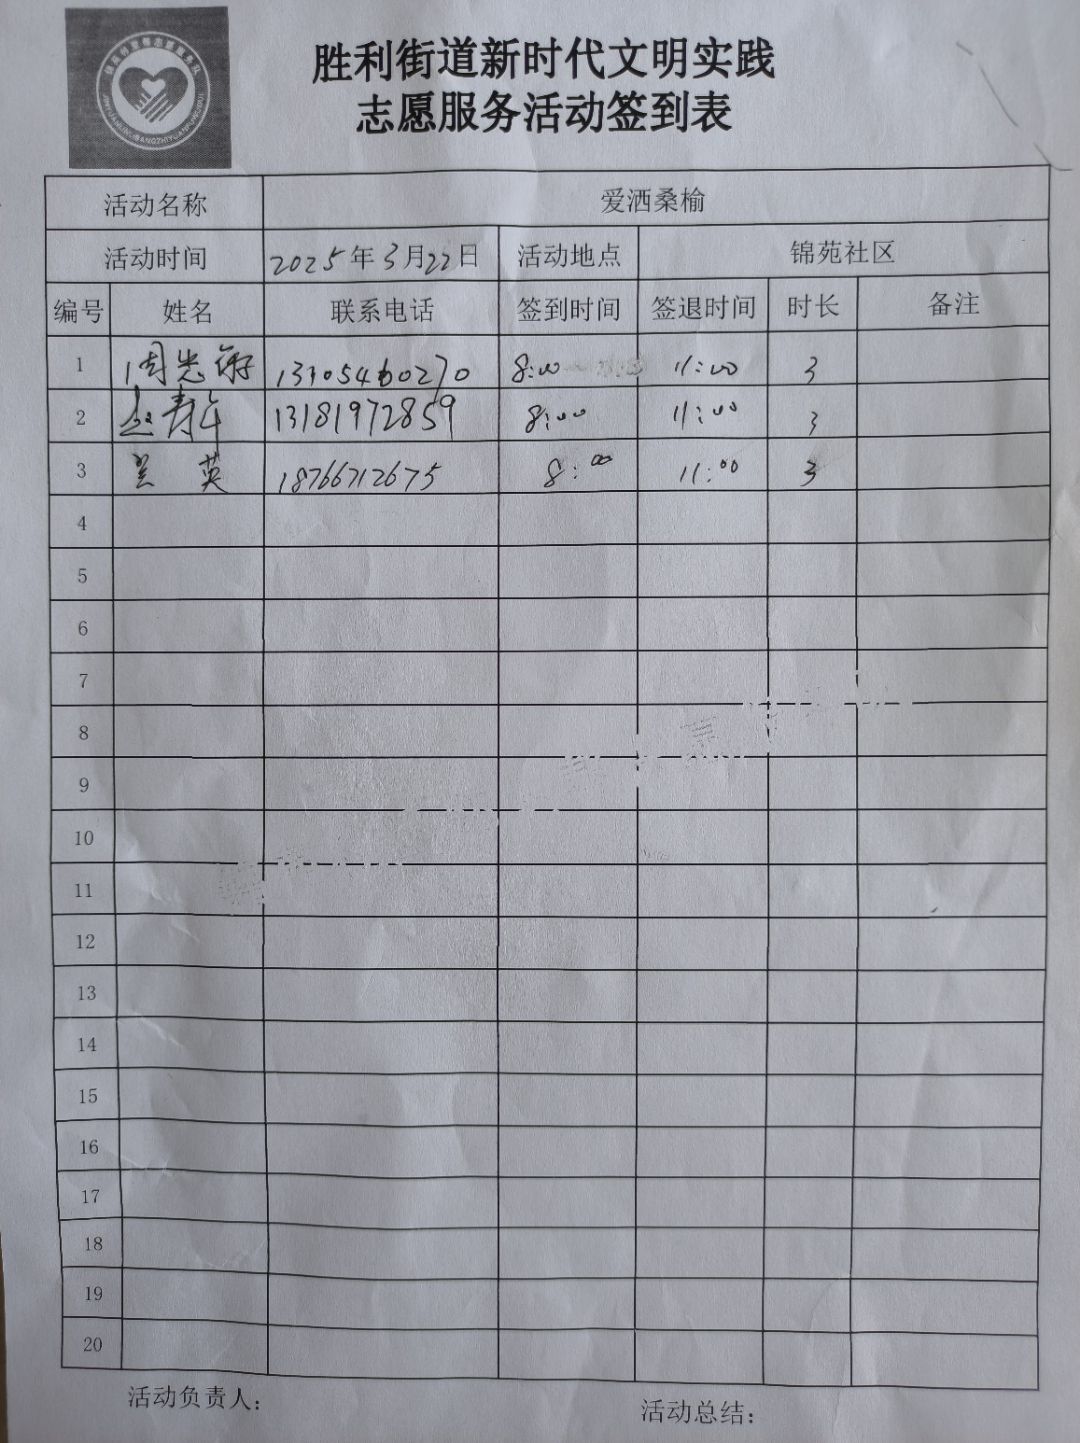 胜利街道新时代文明实践
志愿服务活动签到表
活动名称 爱洒桑榆
活动时间 2025年3月22日 活动地点 锦苑社区
编号 姓名 联系电话 签到时间 签退时间 时长 备注
1 周忠 8:00 11:00 3
2 赵寿年 13181972859 8:00 11:00 3
3 兰英 18766712675 8:00 11:00 3
4
5
6
7
8
9
10
11
12
13
14
15
16
17
18
19
20
活动负责人： 活动总结：